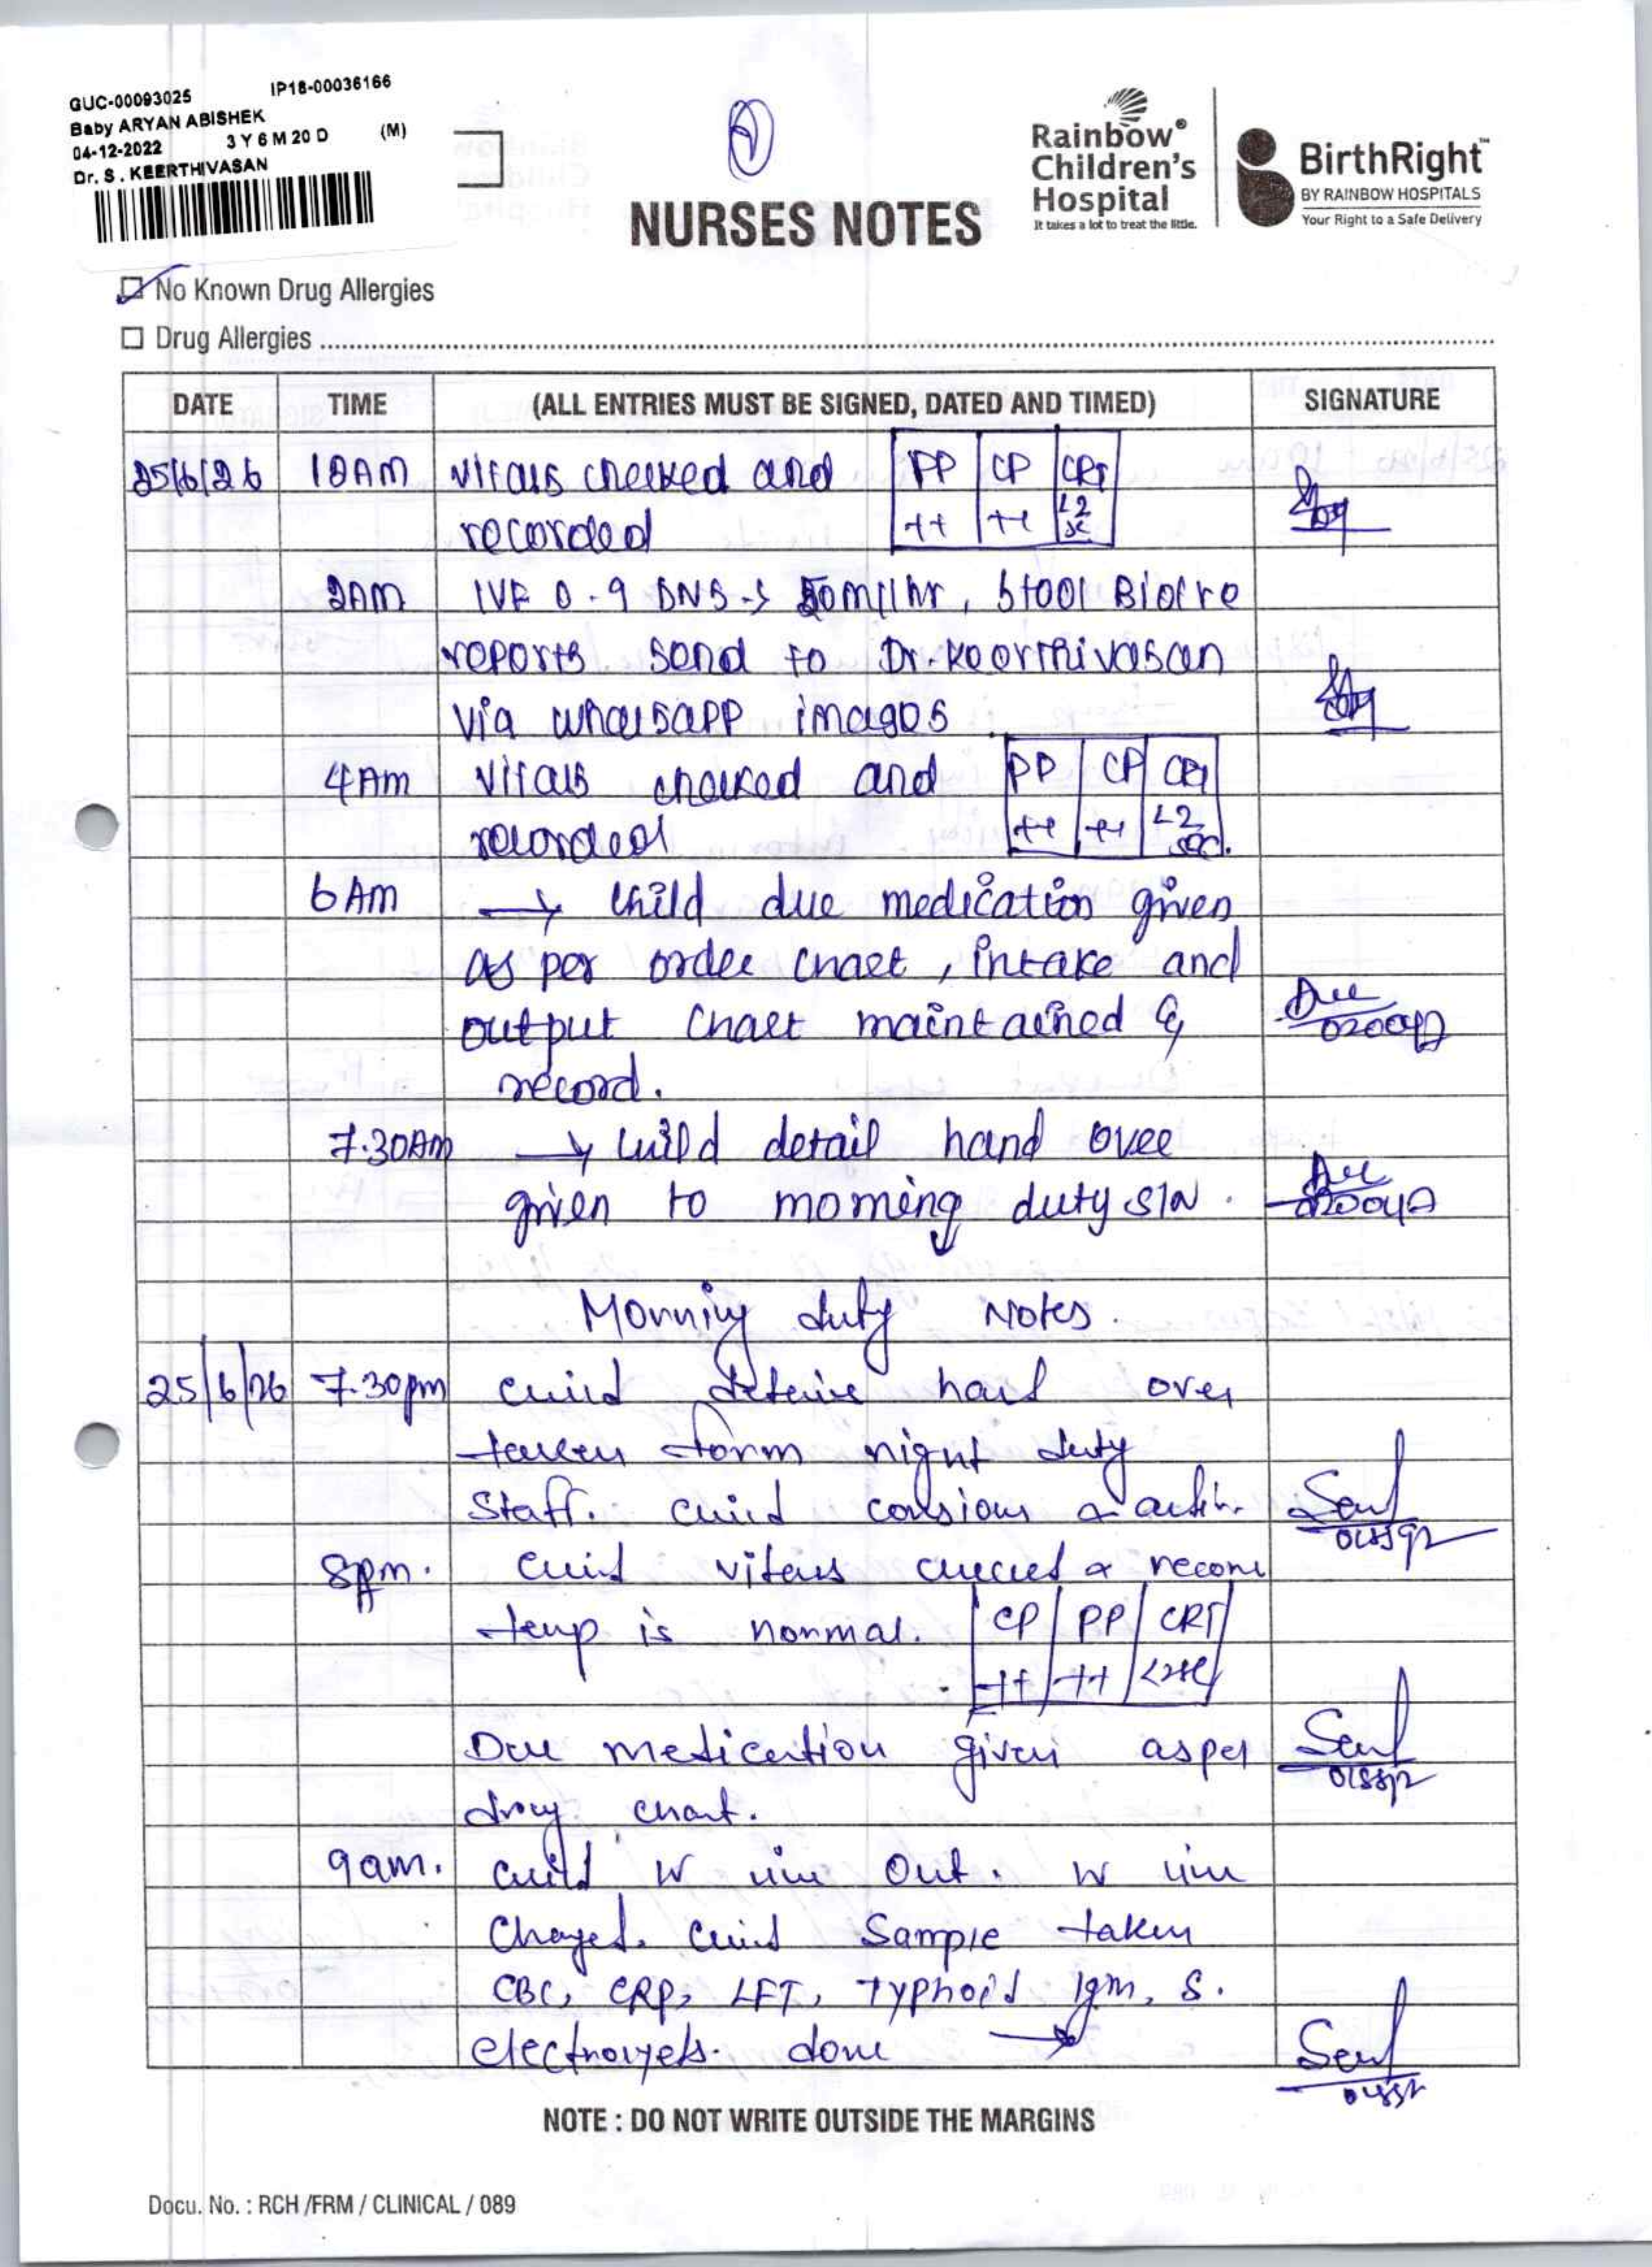 GUC-00093025 IP18-00036166
Baby ARYAN ABISHEK
04-12-2022 3 Y 6 M 20 D (M)
Dr. S . KEERTHIVASAN
Rainbow®
Children's
Hospital
It takes a lot to treat the little.
BirthRight™
BY RAINBOW HOSPITALS
Your Right to a Safe Delivery
NURSES NOTES
No Known Drug Allergies
Drug Allergies
DATE TIME (ALL ENTRIES MUST BE SIGNED, DATED AND TIMED) SIGNATURE
25/6/26 vitals checked and PP CP CRT
recorded ++ ++ <2
2AM IVF 0.9 DNS -> 50ml/hr, Stool Biofire
reports send to Dr. Keerthivasan
via whatsapp images
4AM vitals checked and PP CP CRT
recorded ++ ++ <2 sec.
6 AM → child due medication given
as per order chart, intake and
output chart maintained &
record.
7.30AM → child detail hand over
given to morning duty S/N.
Morning duty Notes.
25/6/26 7.30pm child details hand over
taken form night duty
Staff. child consious & activ.
8pm. child vitals checked &
temp is normal. CP PP CRT
++ ++ <2sec
Due medication given as per
drug chart.
9am. child IV line out. IV line
Chaged. child Sample taken
CBC, CRP, LFT, Typhoid Igm, S.
electrolyets. done →
NOTE : DO NOT WRITE OUTSIDE THE MARGINS
Docu. No. : RCH /FRM / CLINICAL / 089